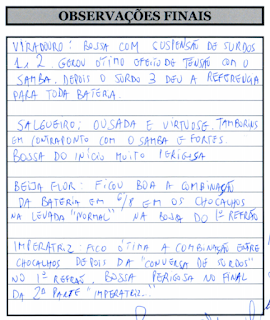 OBSERVAÇÕES FINAIS
VIRADOURO: BOSSA COM SUSPENSÃO DE SURDOS
1 e 2. GEROU ÓTIMO EFEITO DE TENSÃO COM O
SAMBA. DEPOIS O SURDO 3 DEU A REFERENCIA
PARA TODA BATERIA.
SALGUEIRO: OUSADA E VIRTUOSE. TAMBORINS
EM CONTRAPONTO COM O SAMBA E FORTES.
BOSSA DO INÍCIO MUITO PERIGOSA
BEIJA FLOR: FICOU BOA A COMBINAÇÃO
DA BATERIA EM 6/8 E OS CHOCALHOS
NA LEVADA "NORMAL" NA BOSSA DO 1º REFRÃO
IMPERATRIZ: FICO ÓTIMA A COMBINAÇÃO ENTRE
CHOCALHOS DEPOIS DA "CONVERSA DE SURDOS"
NO 1º REFRÃO. BOSSA PERIGOSA NO FINAL
DA 2ª PARTE "IMPERATRIZ..."